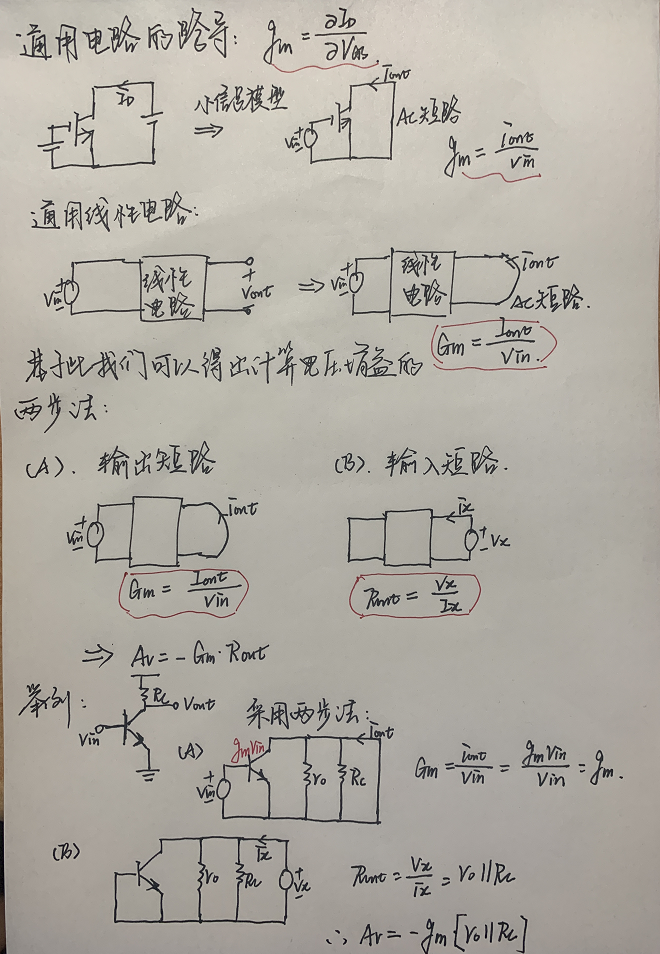 通用电路的跨导: gm = ∂ID / ∂VGS.
ID
小信号模型
⇒
iout
Vin + −
AC短路
gm = iout / Vin
通用线性电路:
Vin + −
线性电路
+ Vout −
⇒
Vin + −
线性电路
iout
AC短路.
Gm = Iout / Vin.
基于此我们可以得出计算电压增益的
两步法:
(A). 输出短路
(B). 输入短路.
Vin + −
iout
ix
+ Vx −
Gm = Iout / Vin
Rout = Vx / Ix
⇒ Av = −Gm·Rout
举例:
Rc
Vout
Vin
采用两步法:
(A)
gmVin
iout
Vin + −
ro
Rc
Gm = iout / Vin = gmVin / Vin = gm.
(B)
ix
ro
Rc
+ Vx −
Rout = Vx / ix = ro||Rc
∴ Av = −gm[ro||Rc]